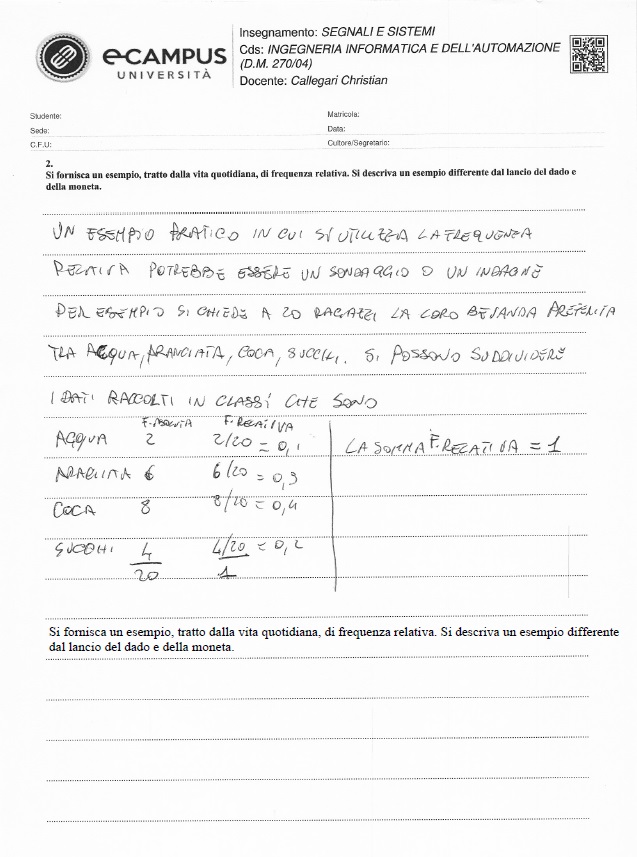 e-CAMPUS
UNIVERSITÀ
Insegnamento: SEGNALI E SISTEMI
Cds: INGEGNERIA INFORMATICA E DELL'AUTOMAZIONE
(D.M. 270/04)
Docente: Callegari Christian
Studente: Matricola:
Sede: Data:
C.F.U: Cultore/Segretario:
2.
Si fornisca un esempio, tratto dalla vita quotidiana, di frequenza relativa. Si descriva un esempio differente dal lancio del dado e
della moneta.
UN ESEMPIO PRATICO IN CUI SI UTILIZZA LA FREQUENZA
RELATIVA POTREBBE ESSERE UN SONDAGGIO O UN INDAGNE
PER ESEMPIO SI CHIEDE A 20 RAGAZZI LA LORO BEVANDA PREFERITA
TRA ACQUA, ARANCIATA, COCA, SUCCHI. SI POSSONO SUDDIVIDERE
I DATI RACCOLTI IN CLASSI CHE SONO
F. RELATIVA
ACQUA 2 2/20 = 0,1 LA SOMMA F. RELATIVA = 1
6 6/20 = 0,3
COCA 8 8/20 = 0,4
SUCCHI 4 4/20 = 0,2
20 1
Si fornisca un esempio, tratto dalla vita quotidiana, di frequenza relativa. Si descriva un esempio differente
dal lancio del dado e della moneta.